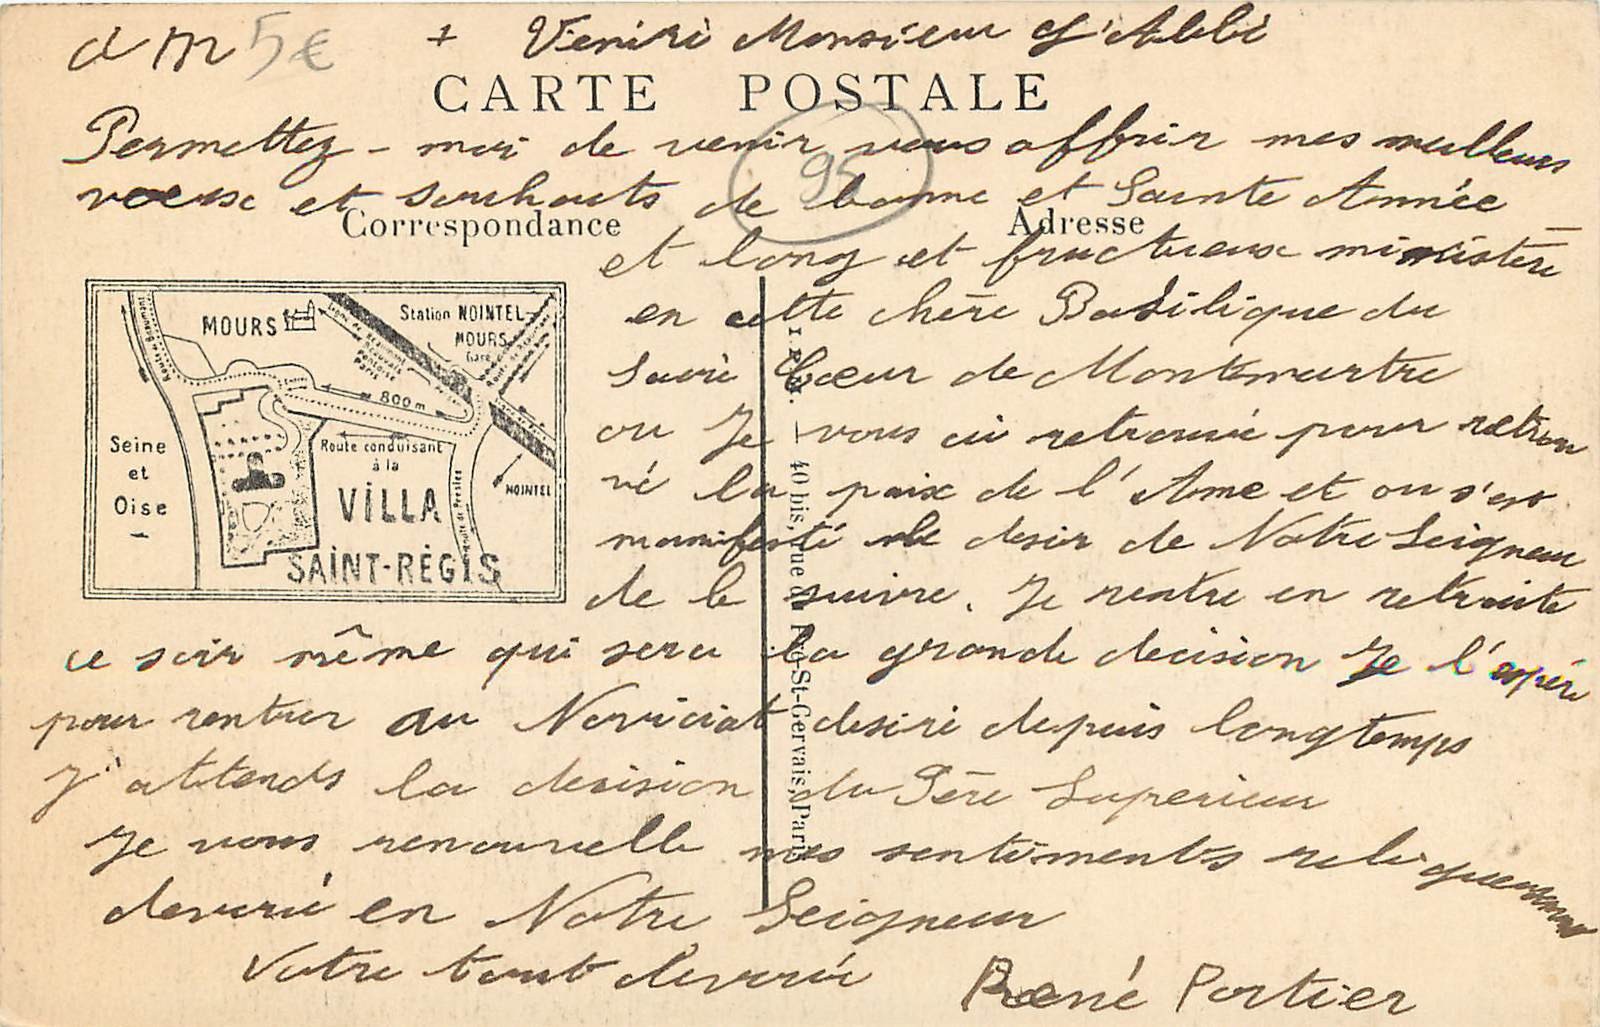 am 5€ + Vénéré Monsieur l'Abbé
CARTE POSTALE
Permettez-moi de venir vous offrir mes meilleurs
95
voeux et souhaits de bonne et Sainte Année
Correspondance
Adresse
et long et fructueux ministère
en cette chère Basilique du
Sacré Cœur de Montmartre
ou Je vous ai retrouvé pour retrou
vé la paix de l'Ame et ou s'est
manifesté le desir de Notre Seigneur
de le suivre. Je rentre en retraite
ce soir même qui sera la grande decision Je l'espère
pour rentrer au Noviciat desiré depuis longtemps
J'attends la decision du Père Superieur
Je vous renouvelle mes sentiments religieusement
devoué en Notre Seigneur
Votre tout devoué René Portier
MOURS
Station NOINTEL
MOURS
Gare
Ligne de Beaumont
Beauvais
Pontoise
Paris
800m
Seine
et
Oise
Route conduisant
à la
VILLA
SAINT-RÉGIS
NOINTEL
Route de Presles
40 bis, rue du Pré-St-Gervais, Paris